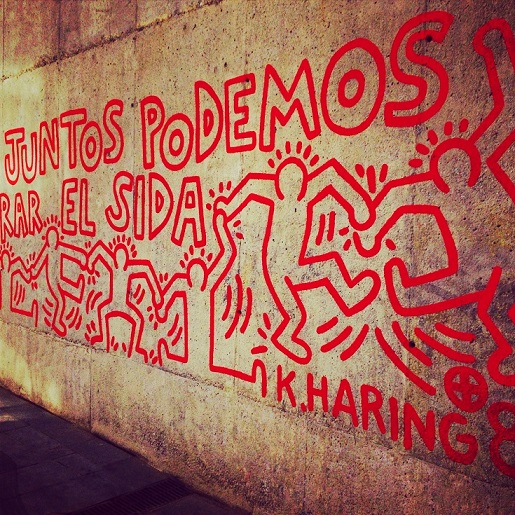 JUNTOS PODEMOS
RAR EL SIDA
K.HARING